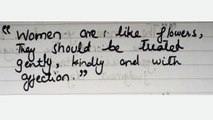 “Women are like flowers,
They should be treated
gently, kindly and with
affection.”